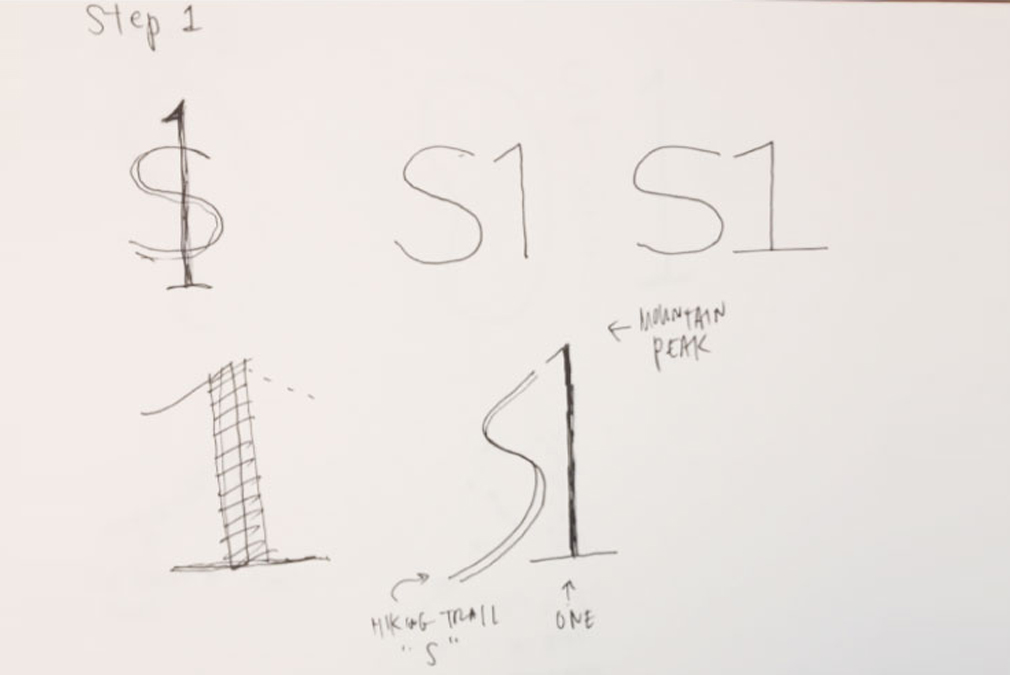 Step 1
$1
S1
S1
← MOUNTAIN
PEAK
1
S1
HIKING TRAIL
"S"
↑
ONE